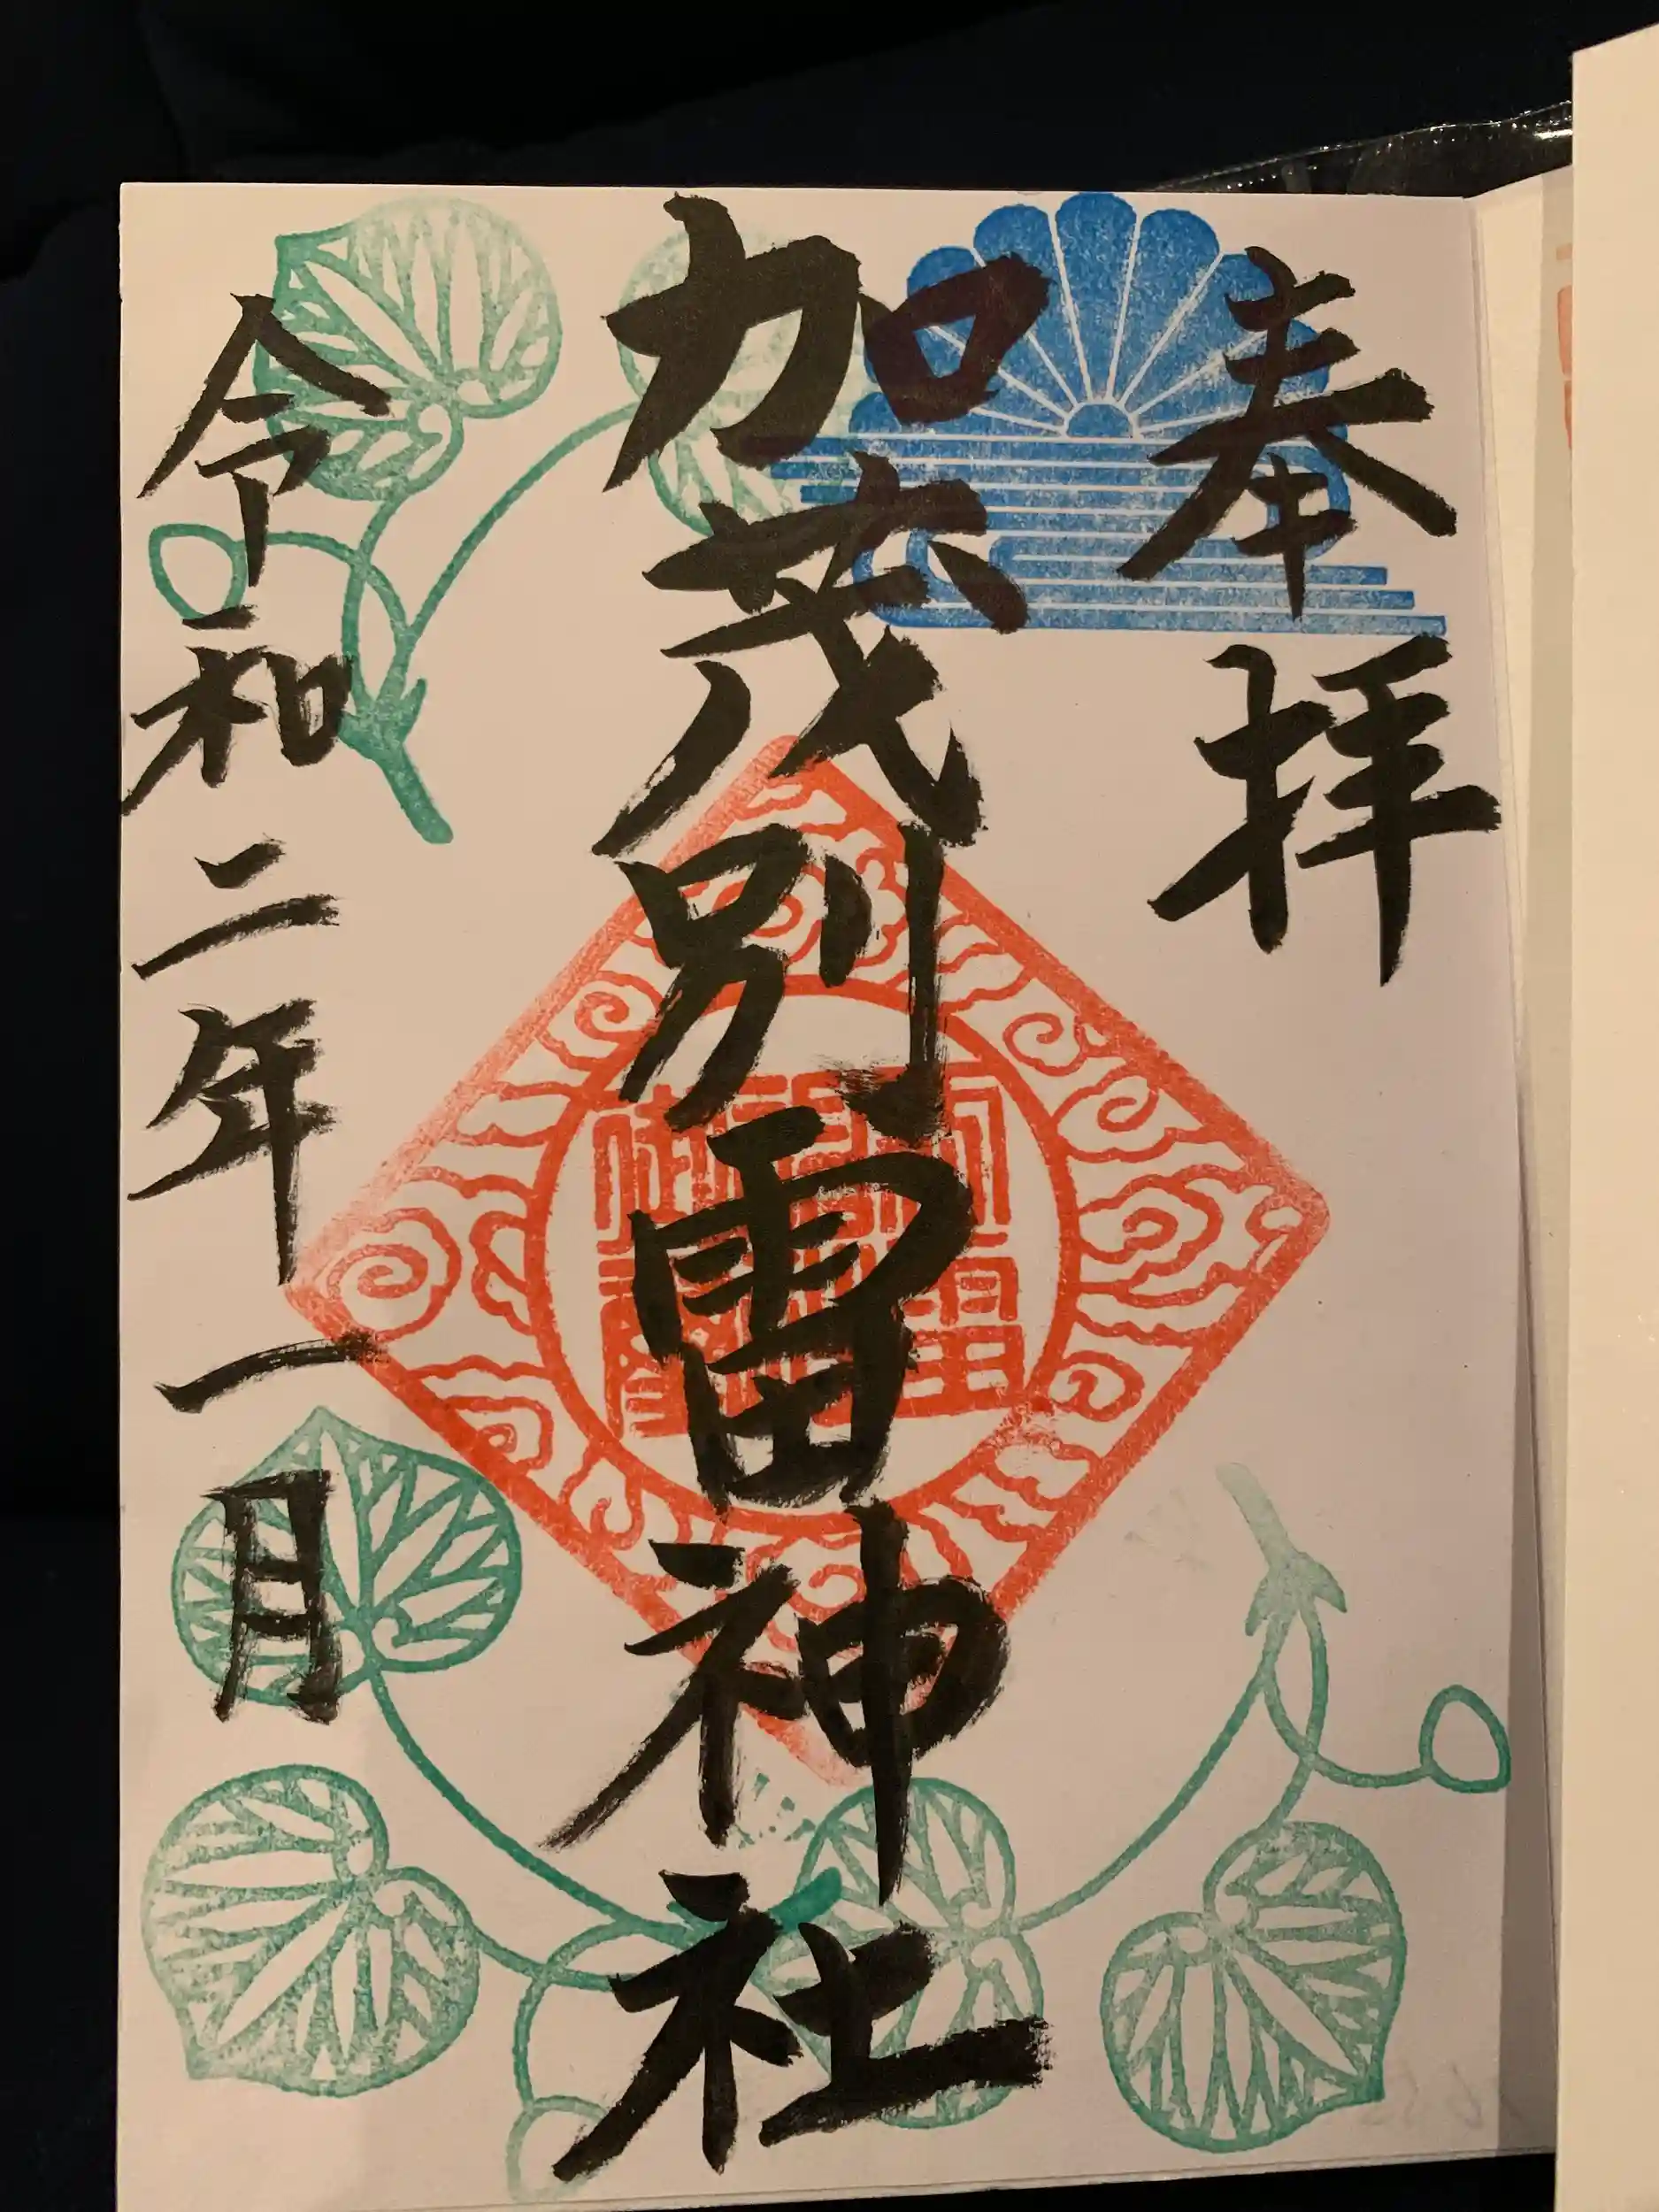 奉拝
加茂別雷神社
令和二年一月